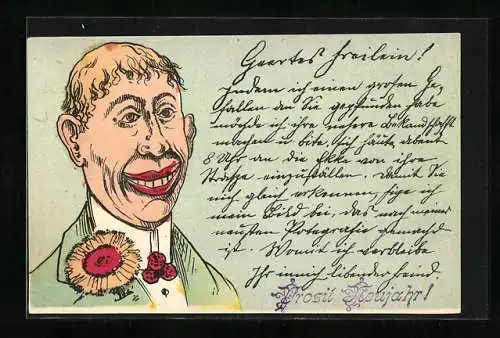 Geertes Freilein!
Indem ich einen grosen Ge-
fallen an Sie gepfunden habe
möchde ich ihre nehere Bekandschafft
machen u. bite, sich häute abent
8 Uhr an die Ekke von ihre
Strasse einzufällen. Damit Sie
mich gleich erkennen, fige ich
mein Bild bei, das nach meiner
neusten Potegrafie gemachd
ist. Womit ich verbleibe
Ihr innich libender Freind.
Prosit Neujahr!